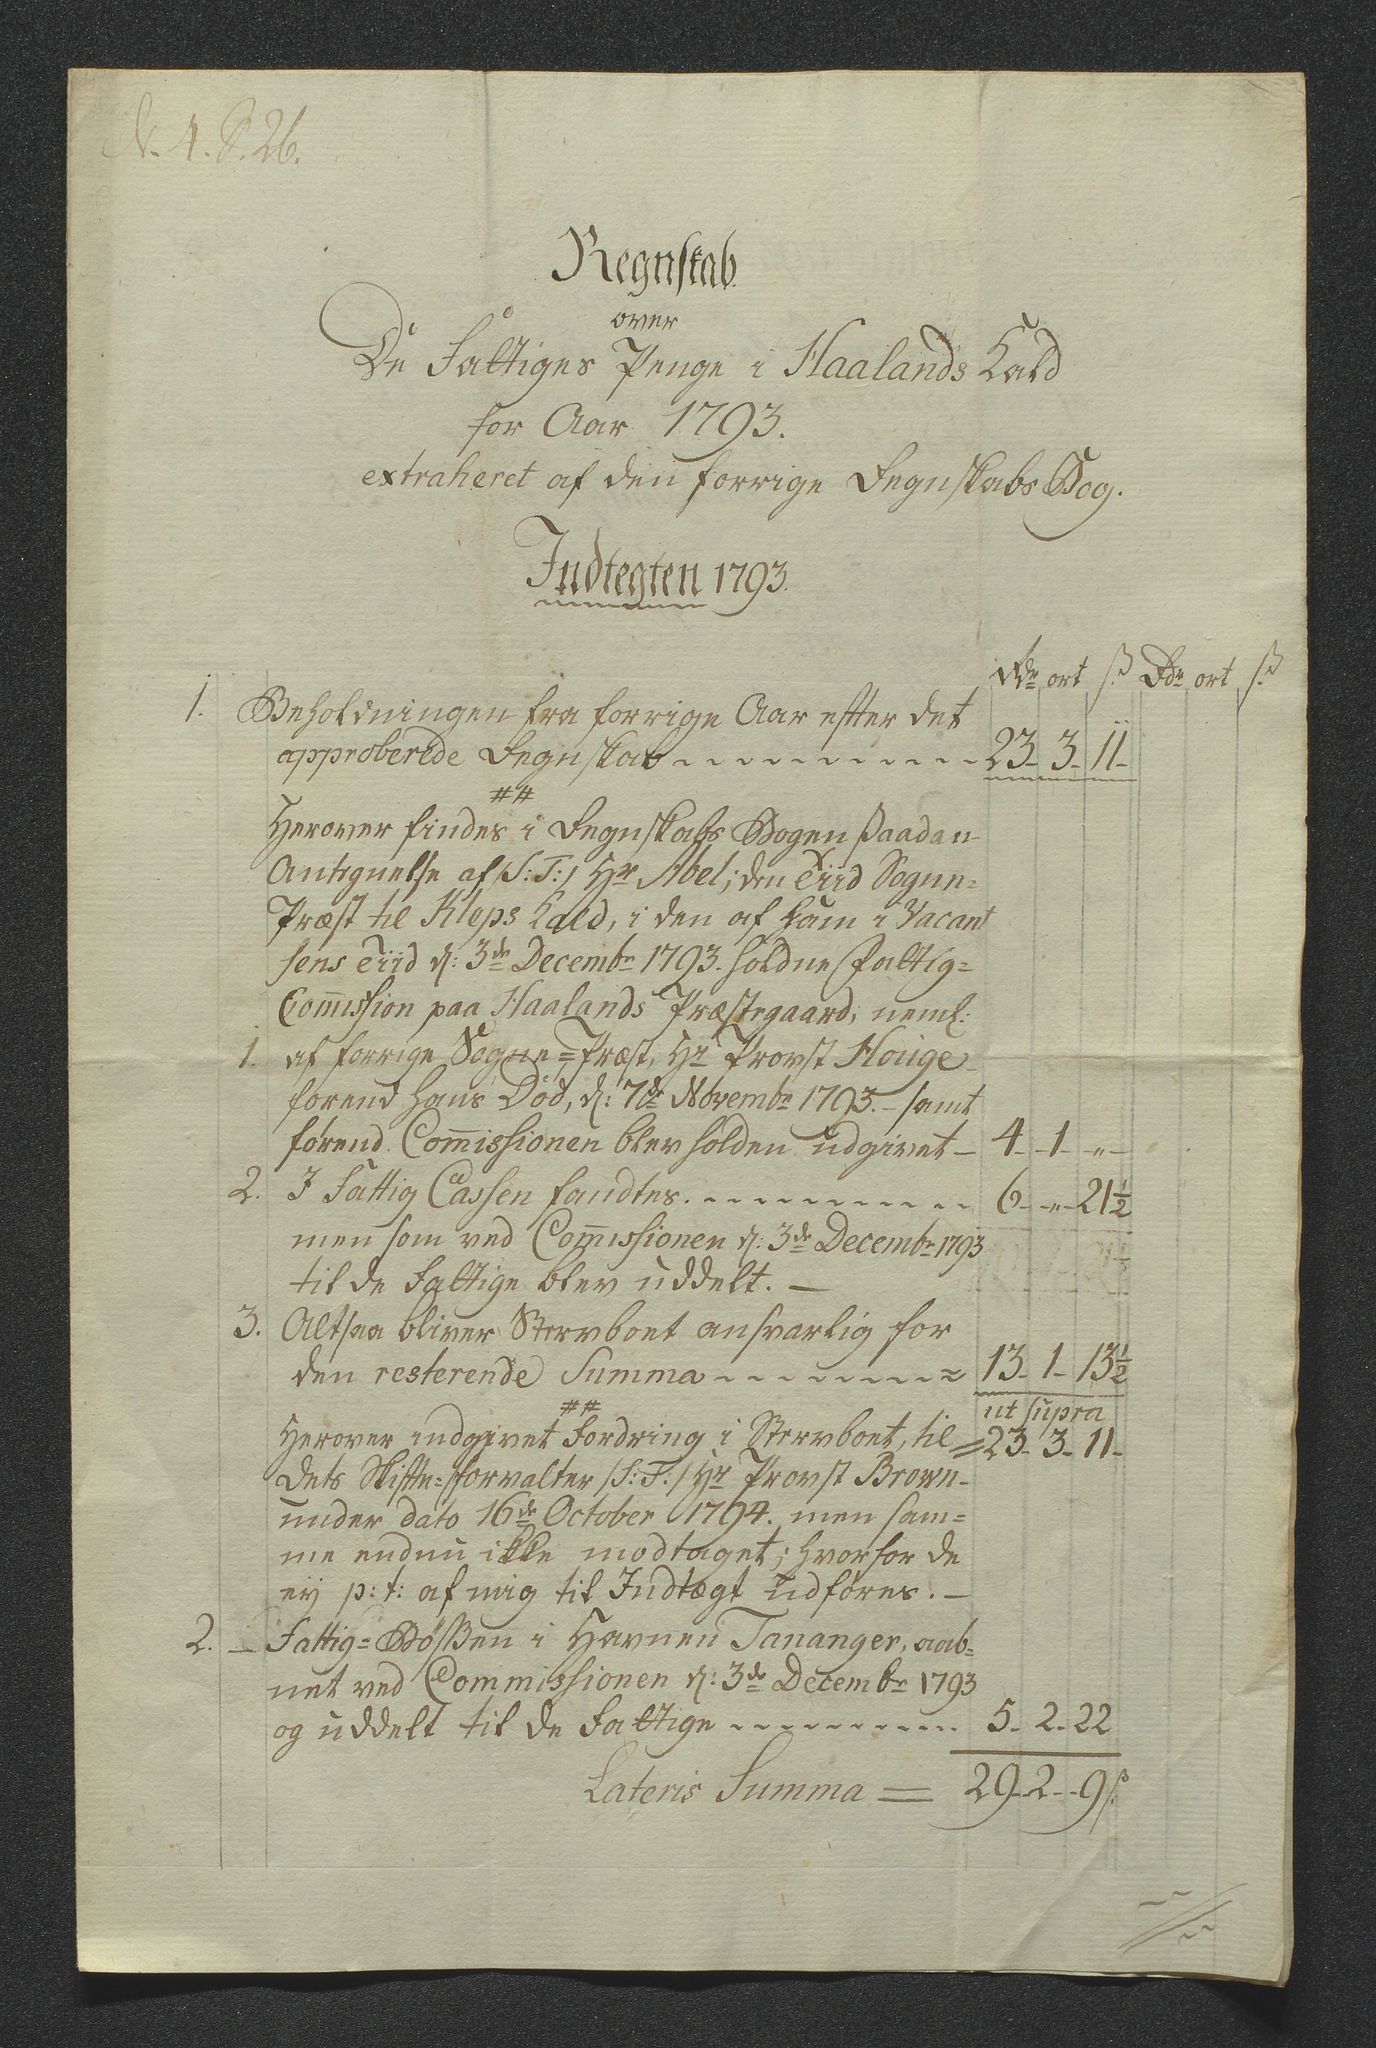 N. 4. S. 26.
Regnskab
over
De Fattiges Penge i Haalands Kald
for Aar 1793.
extraheret af den forrige Regnskabs Bog.
Indtegten 1793.
Rdr ort ß Rdr ort ß
1. Beholdningen fra forrige Aar efter det
approberede Regnskab 23 - 3 - 11 -
##
Herover findes i Regnskabs Bogen saadan
Antegnelse af /S:T:/ Hr Abel; den Tiid Sogne=
Præst til Kleps Kald, i den af ham i Vacant
sens Tiid d: 3de Decembr 1793. holdne Fattig=
Com̄ission paa Haalands Præstegaard; neml:
1. af forrige Sogne=Præst, Hr Provst Houge
forend hans Død, d: 7de Novembr 1793. - samt
førend Com̄issionen blev holden udgivet - 4 - 1 - " -
2. I Fattig Cassen fandtes. 6 - " - 21½
men som ved Com̄issionen d: 3de Decembr 1793
til de Fattige blev uddelt. -
3. Altsaa bliver Stervboet ansvarlig for
den resterende Summa 13 - 1 - 13½
ut supra
##
Herover indgivet Fordring i Stervboet, til = 23 - 3 - 11 -
dets Skifte=forvalter /S:T:/ Hr Provst Brown
under dato 16de October 1794. men sam=
me endnu ikke modtaget; hvorfor de
eij p: t: af mig til Indtægt udføres. -
2. - Fattig=Bøssen i Havnen Tananger, aab=
net ved Commissionen d: 3de Decembr 1793
og uddelt til de Fattige 5 - 2 - 22
Lateris Summa = 29 - 2 - 9 ß.